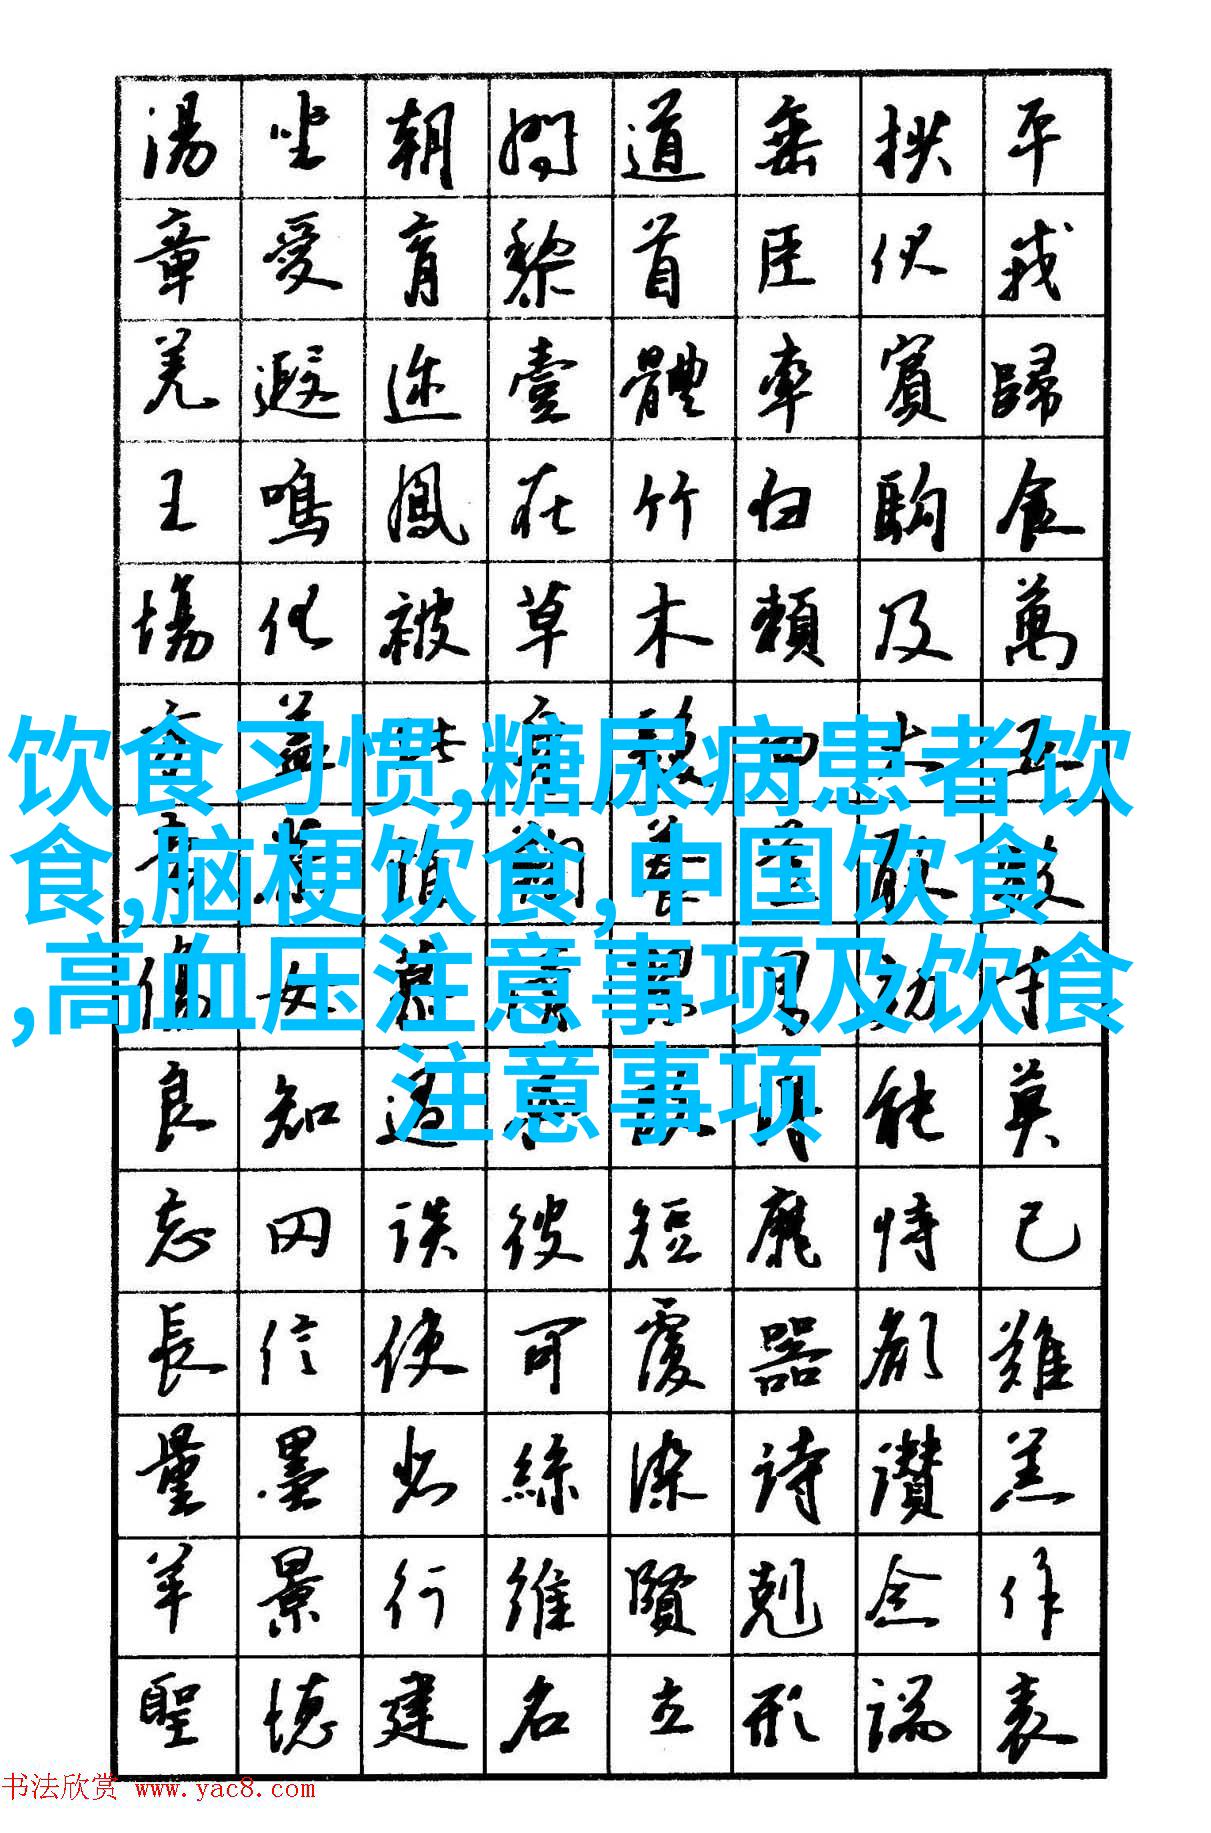 湯坐朝問道垂拱平
章愛育黎首臣伏戎
羌遐迩壹體率賓歸
王鳴鳳在竹白駒食
場化被草木賴及萬
饮食习惯,糖尿病患者饮
食,脑梗饮食,中国饮食
,高血压注意事项及饮食
注意事项
良知過能莫
忘罔談彼短靡恃己
長信使可覆器欲難
量墨悲絲染詩讚羔
羊景行維賢剋念作
聖德建名立形端表
书法欣赏 www.yac8.com